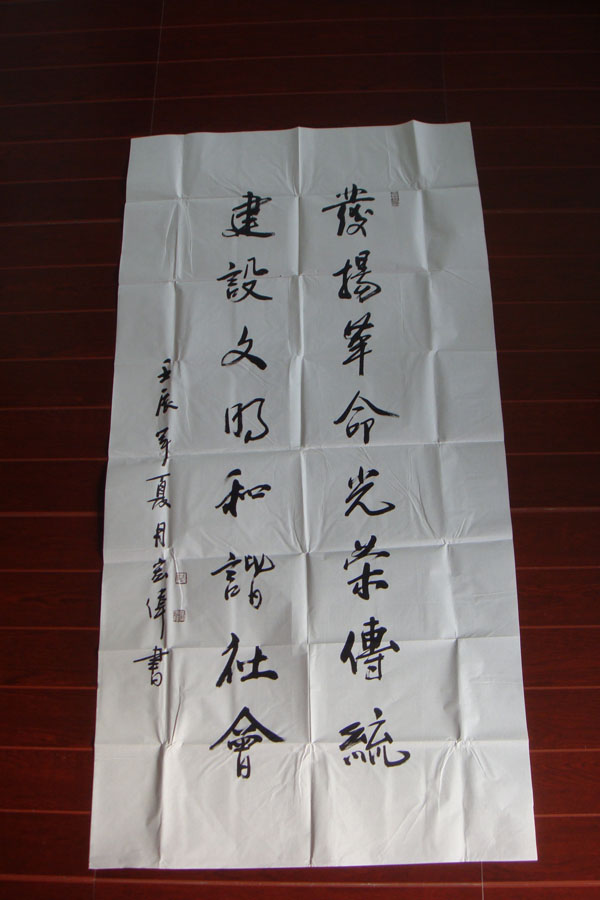 發揚革命光荣傳統
建設文明和諧社會
壬辰年夏月宏偉書